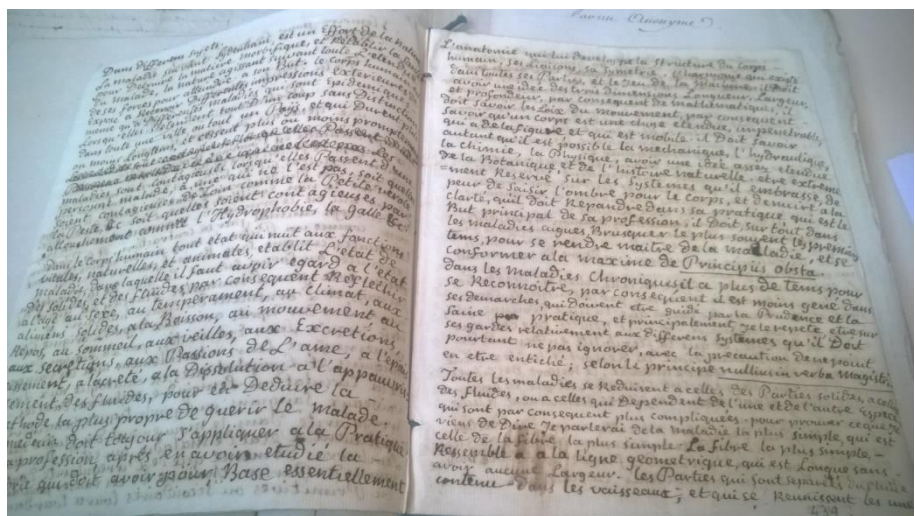 Par un Anonyme
Dans differens sujets.
La maladie suivant Sydenham est un effort de la nature
pour Detruire la matiere morbifique, et Rétablir la santé
du Malade, la nature agissant suivant toute L'etendue
de ses forces pour aller a son But. le corps humain etant
sujet a Recevoir Differentes impressions Exterieures, de
même qu'a Differentes maladies qui sont Epidemiques
lorsqu'elles se Repandent tout D'un coup sans Distinction
dans toute une ville ou tout un Pays, et qui Durent
un moins longtems, et cessent plus ou moins promptement
maladies sont contagieuses lorsqu'elles Passent D'une
personne malade, a une qui ne l'est pas; soit quelles
soient contagieuses de Loin comme la Petite verole
la Peste, &c soit quelles soient contagieuses par
attouchement comme l'Hydrophobie, la galle &c
Dans le corps humain tout etat qui nuit aux fonctions
vitales, naturelles, et animales, etablit L'etat de
maladie, dans laquelle il faut avoir egard a l'etat
des solides, et des fluides par consequent Reflechir
a l'age au sexe, au temperament, au Climat, aux
alimens solides, a la Boisson, au mouvement au
Repos, au sommeil, aux veilles, aux Excretions
aux secretions, aux Passions de L'ame, a l'epais
sissement, a l'acreté, a la Dissolution a l'appauvris
sement, des fluides, pour en Deduire la
methode la plus propre de guerir le malade.
medecin doit toujour s'appliquer a la Pratique
sa profession, après en avoir etudié la
qui doit avoir pour Base essentiellement
L'anatomie qui lui Developpe la structure du corps
humain, ses liaisons, sa symetrie, l'harmonie qui existe
dans toutes ses Parties et le jeu de la Machine. il doit
avoir une idée des trois dimensions, Longueur, Largeur,
et profondeur, par consequent de mathematiques, il
doit savoir les Loix du mouvement, par consequent
savoir qu'un corps est une chose etendue, impenetrable,
qui a de la figure et qui est mobile. il Doit savoir
autant qu'il est possible la mechanique, l'hydraulique,
la chimie, la Physique, avoir une idée assez etendue
de la Botanique, et de l'histoire naturelle, et etre extreme
=ment Reservé sur les systemes qu'il embrasse, de
peur de saisir l'ombre pour le corps, et de nuire a la
clarté, qu'il doit Repandre dans sa pratique qui est le
But principal de sa profession; il doit, sur tout dans
les maladies aigues, Brusquer le plus souvent les premiers
tems, pour se rendre maitre de la maladie, et se
conformer a la maxime de Principiis obsta
dans les maladies Chroniques il a plus de tems pour
se Reconnoitre, par consequent il est moins gené dans
ses demarches qui doivent etre guidé par la Prudence et la
saine pratique, et principalement, se etre sur
ses gardes relativement aux differens systemes qu'il Doit
pourtant ne pas ignorer, avec la precaution de ne point
en etre entiché; selon le principe nullius in verba Magistri
Toutes les maladies se Reduisent a celles des Parties solides, a celles
des fluides, ou a celles qui Dependent de l'une et de l'autre Espece
qui sont par consequent plus compliquées. pour prouver ce que Je
viens de Dire Je parlerai de la maladie la plus simple, qui est
celle de la fibre la plus simple. La fibre la plus simple –
Ressemble a la ligne geometrique, qui est Longue sans
avoir aucune Largeur. Les Parties qui sont separés du fluide
contenu dans les vaisseaux; et qui se Reunissent les unes
439